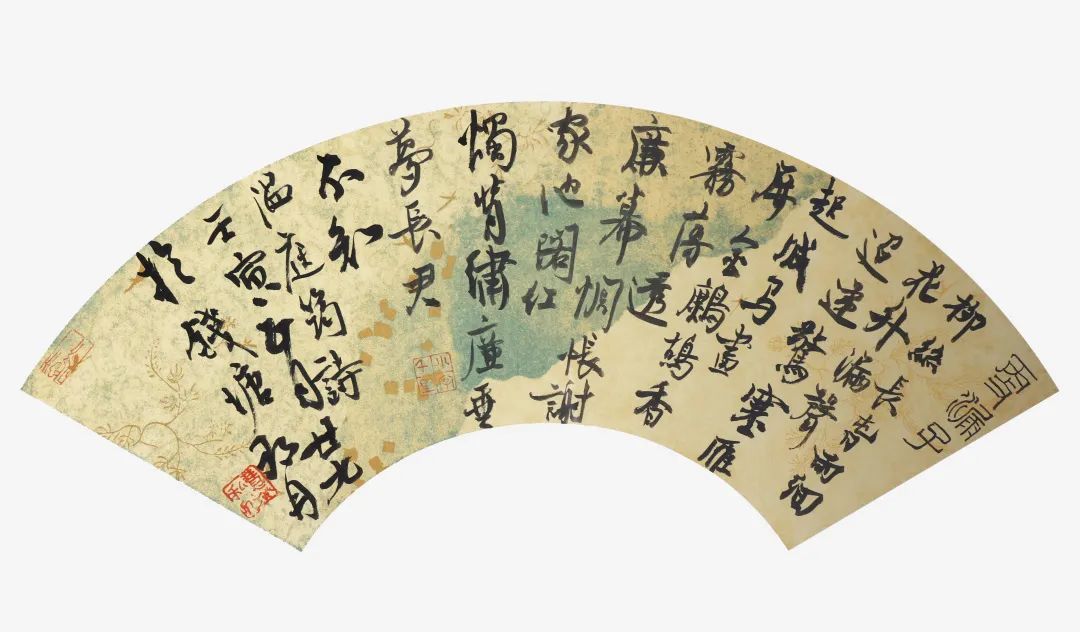 更漏子
柳絲長春雨細
花外漏聲
迢遞驚塞雁
起城烏畫
屏金鷓鴣香
霧薄透
簾幕惆悵謝
家池閣紅
燭背繡簾垂
夢長君
不知
溫庭筠詩
壬寅月廿七
於錢塘